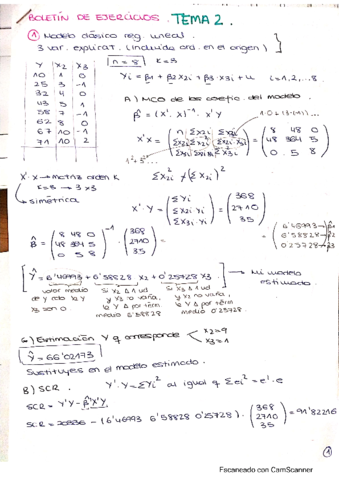 BOLETÍN DE EJERCICIOS. TEMA 2.
① Modelo clásico reg. lineal
3 var. explicat. (incluida ord. en el origen)
n = 8 K=3
Y X2 X3
10 1 0
25 3 -1
32 4 0
43 5 1
58 7 -1
62 8 0
67 10 -1
71 10 2
Yi = β1 + β2 X2i + β3 · X3i + u i=1,2,..8.
A) MCO de los coefic. del modelo
β̂ = (X'·X)⁻¹ · X'Y
1·0+3·(-1)...
X'X = ( n Σx2i Σx3i
Σx2i Σx2i² Σx2i·x3i
Σx3i Σx3i Σx3i² ) = ( 8 48 0
48 364 5
0 5 8 )
1²+3²...
X'·X → matriz orden K
K=3 → 3x3
simétrica
Σx2i² ≠ (Σx2i)²
X'·Y = ( ΣYi
Σx2i Yi
Σx3i Yi ) = ( 368
2710
35 )
β̂ = ( 8 48 0
48 364 5
0 5 8 )⁻¹ · ( 368
2710
35 ) = ( 6'46993 → β1
6'58828 → β2
0'25728 → β3 )
Ŷ = 6'46993 + 6'58828 X2 + 0'25728 X3
Mi modelo estimado.
valor medio de Y cdo X2 y X3 son 0.
Si X2 Δ 1 ud y X3 no varía, la Y Δ por térm medio 6'58828
Si X3 Δ 1 ud y X2 no varía, la Y Δ por térm medio 0'25728.
Estimación Y q corresponde X2=9 X3=1
Ŷ = 66'02173
Sustituyes en el modelo estimado.
B) SCR. Y'·Y = ΣYi² al igual q Σei² = e'·e
SCR = Y'Y - β̂'X'Y
(6'46993 6'58828 0'25728) · ( 368
2710
35 ) = 91'82216
①
Escaneado con CamScanner